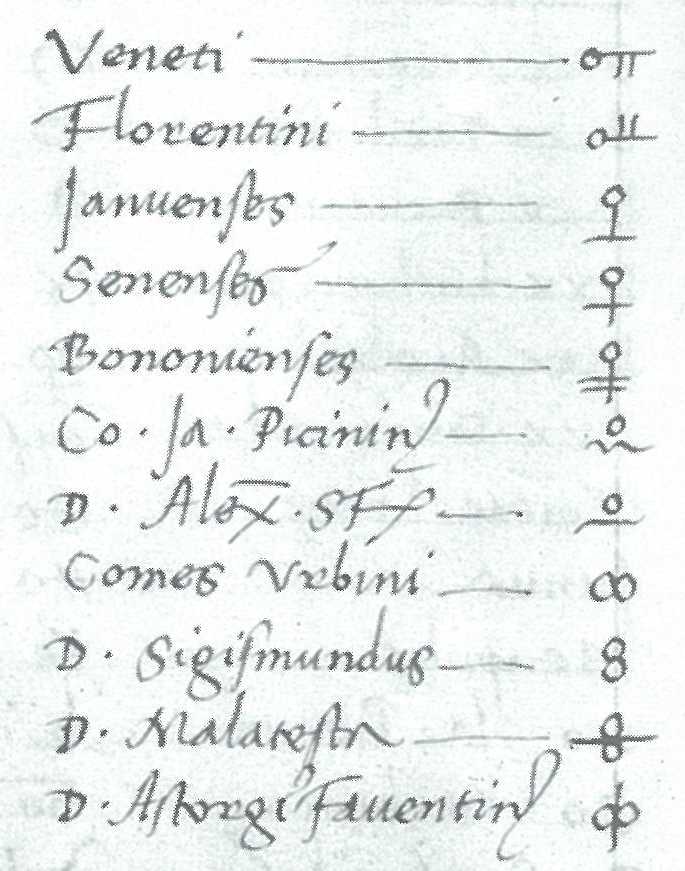 Veneti
Florentini
Januenſes
Senenſes
Bononienſes
Co. Ja. Picinin
D. Alex. SF
Comes Urbini
D. Sigiſmundus
D. Malateſta
D. Aſtorgi Faventin